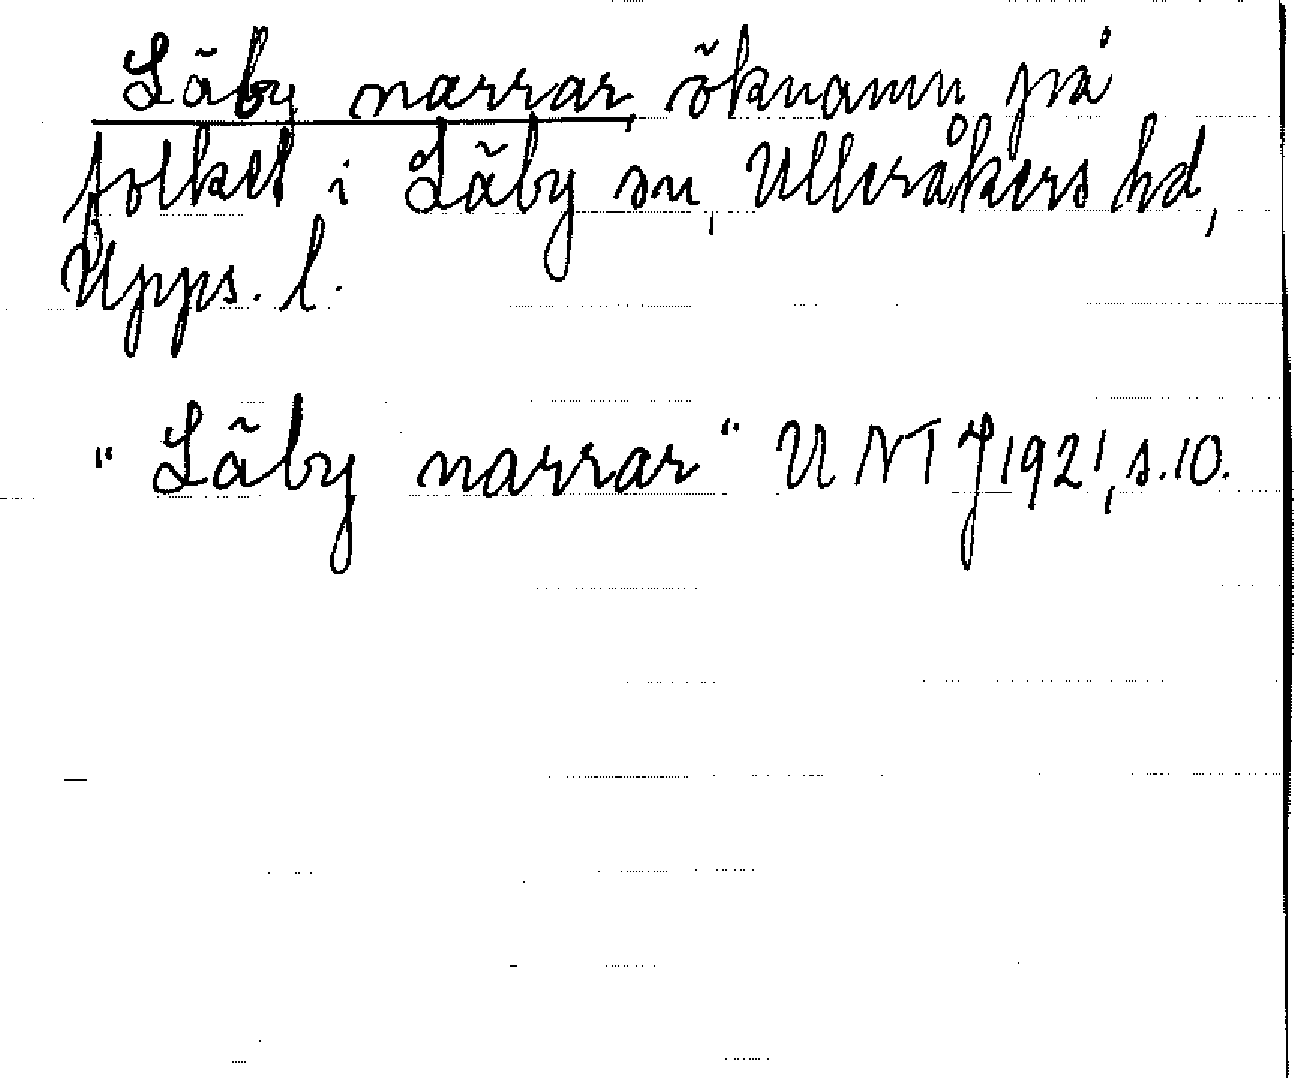 Läby narrar, öknamn på
folket i Läby sn, Ulleråkers hd,
Upps. l.
"Läby narrar" UNTJ 1921, s. 10.